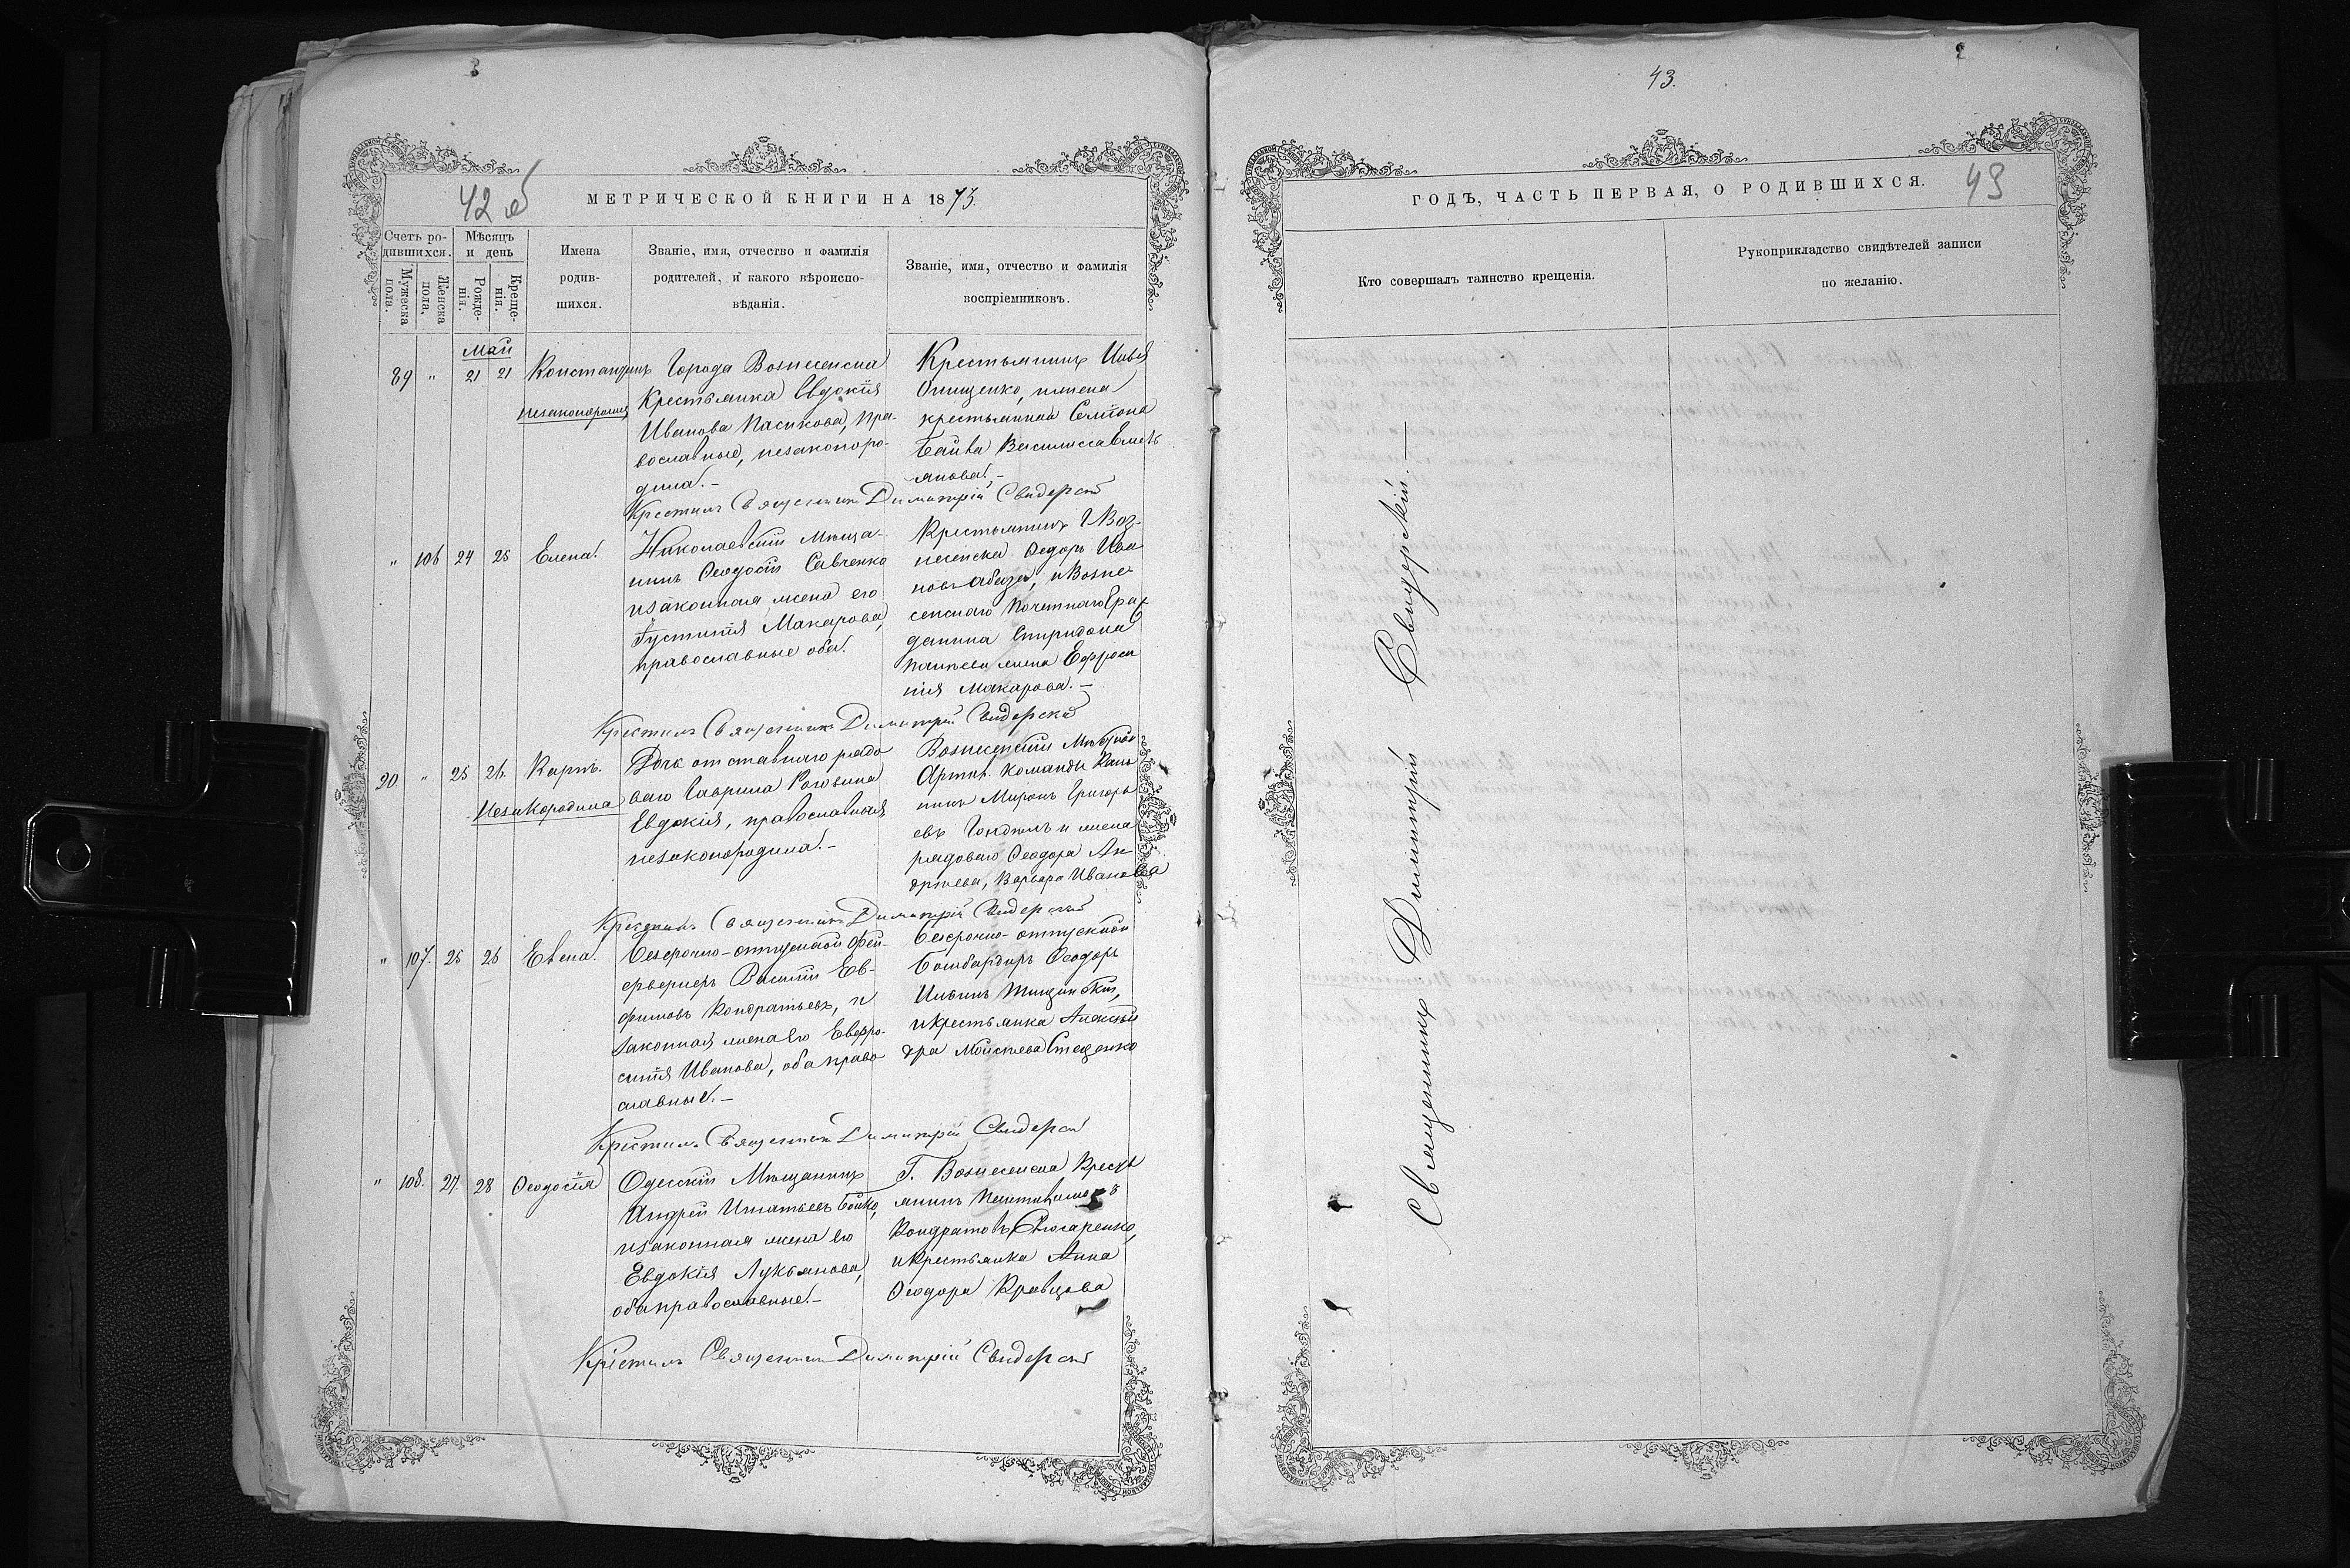 42 об
МЕТРИЧЕСКОЙ КНИГИ НА 1873.
Счетъ ро-
дившихся.
Мужеска
пола.
Женска
пола.
Мѣсяцъ
и день
Рожде-
нія.
Креще-
нія.
Имена
родив-
шихся.
Званіе, имя, отчество и фамилія
родителей, и какого вѣроиспо-
вѣданія.
Званіе, имя, отчество и фамилія
воспріемниковъ.
Май
89 " 21 21 Константинъ
незаконорожд
Города Вознесенска
Крестьянка Евдокія
Иванова Пасикова, пра-
вославные, незаконоро-
дила. -
Крестьянинъ
Онищенко, и жена
крестьянина Семіона
Василисса Емель
янова. -
Крестилъ Священникъ Димитрій Свидерскій
" 106 24 25 Елена.
Николаевскій Мѣща-
нинъ Ѳеодосій Савченко
и законная жена его
Іустинія Макарова,
православные оба.
Крестьянинъ г Воз-
несенска Ѳедоръ Ива
новъ и Возне-
сенскаго Почетнаго Граж
данина Спиридона
жена Ефроси
нія Макарова. -
Крестилъ Священникъ Димитрій Свидерскій
90 " 25 26. Карпъ.
Незакородила
Дочь отставнаго рядо
ваго Гаврила
Евдокія, православная
незаконородила. -
Вознесенскій Мѣстной
Артил. Команды
Миронъ Григорь
евъ и жена
рядоваго Ѳеодора Ан
дрѣева, Варвара Иванова
Крестилъ Священникъ Димитрій Свидерскій
" 107. 25 26 Елена.
Безсрочно-отпускной Фей-
ерверкеръ Василій Ев-
фимовъ Кондратьевъ, и
законная жена его Евфро-
синія Иванова, оба право
славные. -
Безсрочно-отпускной
Бомбардиръ Ѳеодоръ
и крестьянка Алексан
дра Моисѣева Стеценко
Крестилъ Священникъ Димитрій Свидерскій
" 108. 27. 28 Ѳеодосія
Одесскій Мѣщанинъ
Андрей Игнатьевъ Бойко,
и законная жена его
Евдокія Лукьянова,
оба православные. -
Г. Вознесенска Кресть
янинъ
Кондратовъ Слюсаренко,
и крестьянка Анна
Ѳеодора Кравцова
Крестилъ Священникъ Димитрій Свидерскій
43.
ГОДЪ, ЧАСТЬ ПЕРВАЯ, О РОДИВШИХСЯ.
43
Кто совершалъ таинство крещенія.
Рукоприкладство свидѣтелей записи
по желанію.
Священникъ Димитрій Свидерскій. —